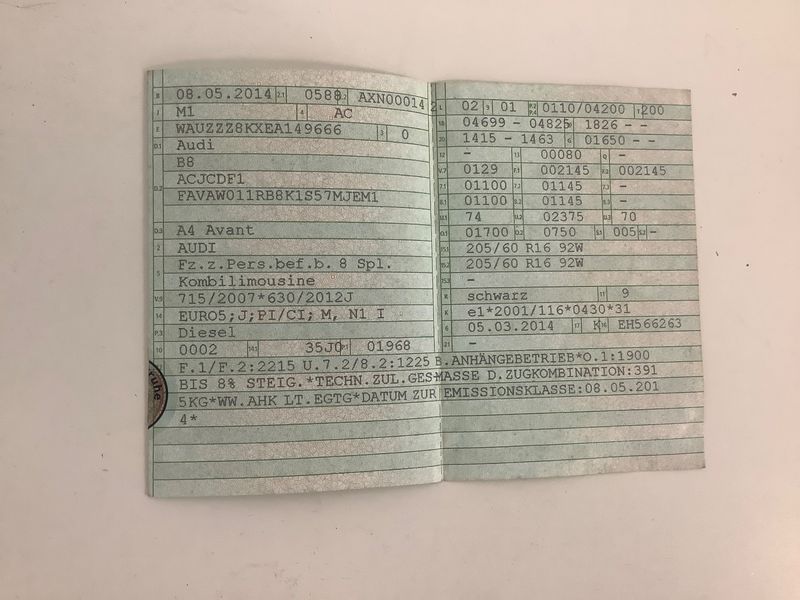 B 08.05.2014 2.1 0588 2.2 AXN00014 2
J M1 4 AC
E WAUZZZ8KXEA149666 3 0
D.1 Audi
B8
D.2 ACJCDF1
FAVAW011RB8K1S57MJEM1
D.3 A4 Avant
2 AUDI
5 Fz.z.Pers.bef.b. 8 Spl.
Kombilimousine
V.9 715/2007*630/2012J
14 EURO5;J;PI/CI; M, N1 I
P.3 Diesel
10 0002 14.1 35J0 P.1 01968
L 02 9 01 P.2 P.4 0110/04200 T 200
18 04699 - 04825 19 1826 - -
20 1415 - 1463 G 01650 - -
12 - 13 00080 Q -
V.7 0129 F.1 002145 F.2 002145
7.1 01100 7.2 01145 7.3 -
8.1 01100 8.2 01145 8.3 -
U.1 74 U.2 02375 U.3 70
O.1 01700 O.2 0750 S.1 005 S.2 -
15.1 205/60 R16 92W
15.2 205/60 R16 92W
15.3 -
R schwarz 11 9
K e1*2001/116*0430*31
6 05.03.2014 17 K 16 EH566263
21 -
F.1/F.2:2215 U.7.2/8.2:1225 B.ANHÄNGEBETRIEB*O.1:1900
BIS 8% STEIG.*TECHN.ZUL.GES-MASSE D.ZUGKOMBINATION:391
5KG*WW.AHK LT.EGTG*DATUM ZUR EMISSIONSKLASSE:08.05.201
4*
ruhe